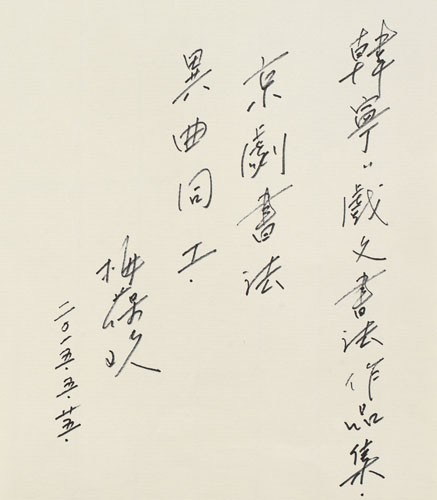 韓寧“戲文書法作品集.
京劇書法
異曲同工.
梅葆玖
二〇一五.五.廿五.